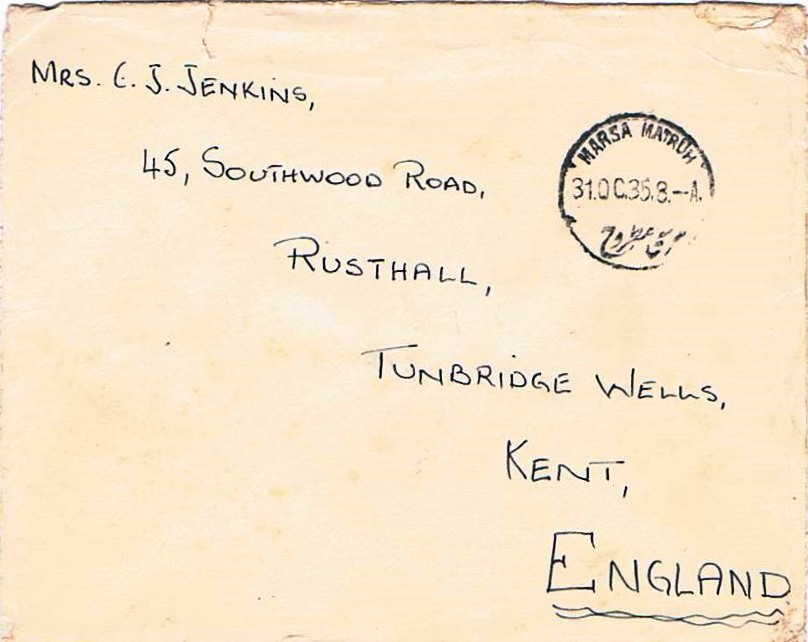 MRS. C. J. JENKINS,
45, SOUTHWOOD ROAD,
RUSTHALL,
TUNBRIDGE WELLS,
KENT,
ENGLAND
MARSA MATRUH
31.OC.35.8.–A.
مرسى مطروح